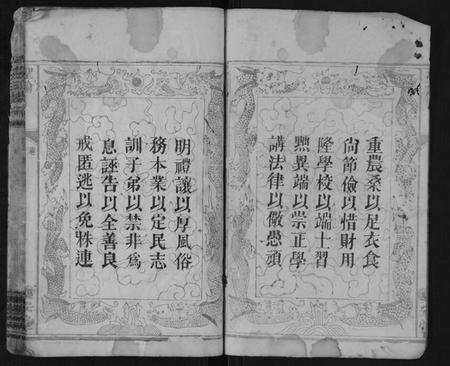 重農桑以足衣食
尙節儉以惜財用
隆學校以端士習
黜異端以崇正學
講法律以儆愚頑
明禮讓以厚風俗
務本業以定民志
訓子弟以禁非爲
息誣告以全善良
戒匿逃以免株連